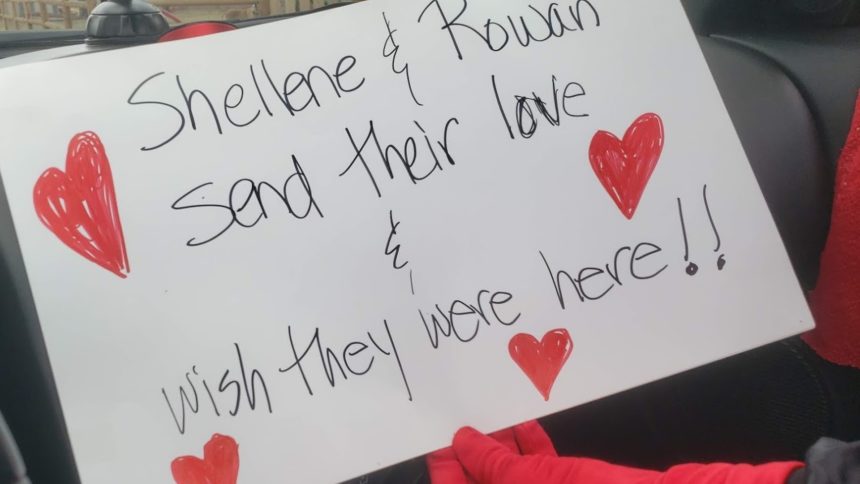 Shellene & Rowan
send their love
&
wish they were here!!